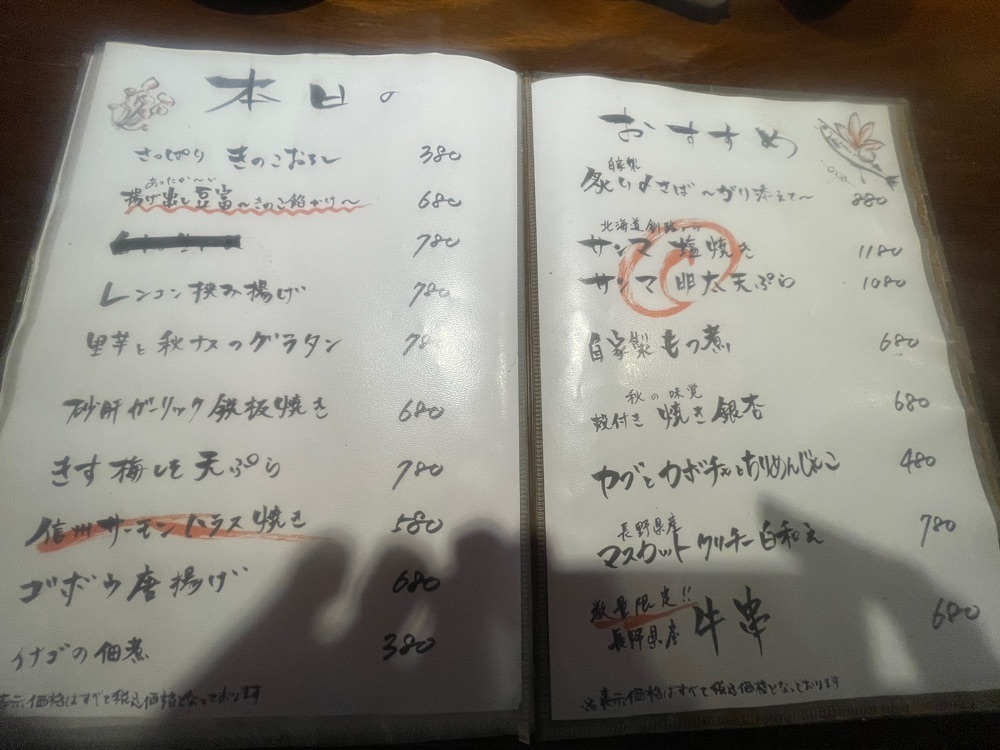 本日の
さっぱり きのこおろし 380
あったか〜い
揚げ出し豆富〜きのこ餡がけ〜 680
780
レンコン挟み揚げ 780
里芋と秋ナスのグラタン 78
砂肝ガーリック鉄板焼き 680
きす梅しそ天ぷら 780
信州サーモンハラス焼き 580
ゴボウ唐揚げ 680
イナゴの佃煮 380
表示価格はすべて税込価格となっております
おすすめ
自家製
炙り〆さば〜がり添えて〜 880
北海道釧路
サンマ 塩焼き 1180
サンマ 明太天ぷら 1080
自家製もつ煮 680
秋の味覚
殻付き 焼き銀杏 680
カブとカボチャとちりめんじゃこ 480
長野県産
マスカット クリチー白和え 780
数量限定!!
長野県産 牛串 680
※表示価格はすべて税込価格となっております